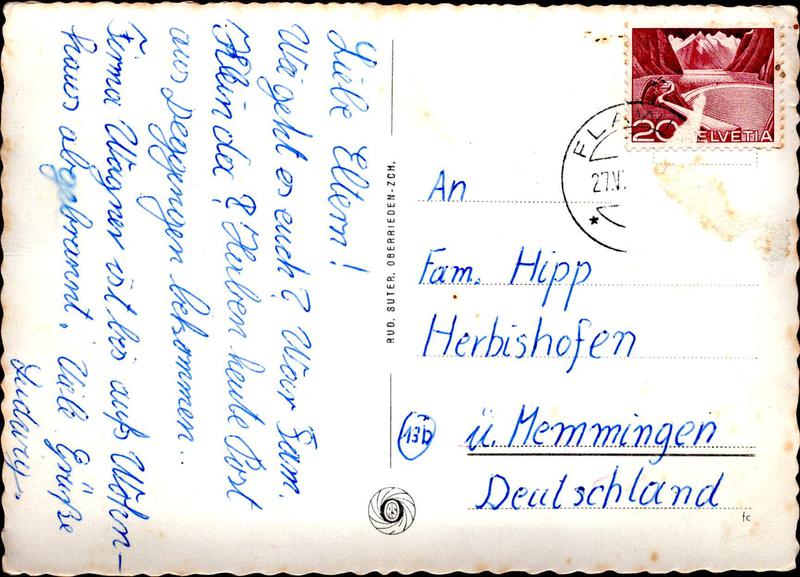 Liebe Eltern!
Wie geht es euch? War Sam.
Klein da? Herben heute Post
aus Deggingen bekommen..
Firma Wagner ist bis aufs Wohn-
haus abgebrannt. Viele Grüße
Ludwig.
RUD. SUTER, OBERRIEDEN-ZCH.
20 HELVETIA
FLAW
27.VI
An
Fam. Hipp
Herbishofen
(13b) ü. Memmingen
Deutschland
fc